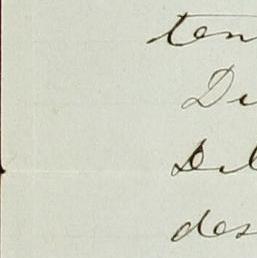 ten
Di
Del
des